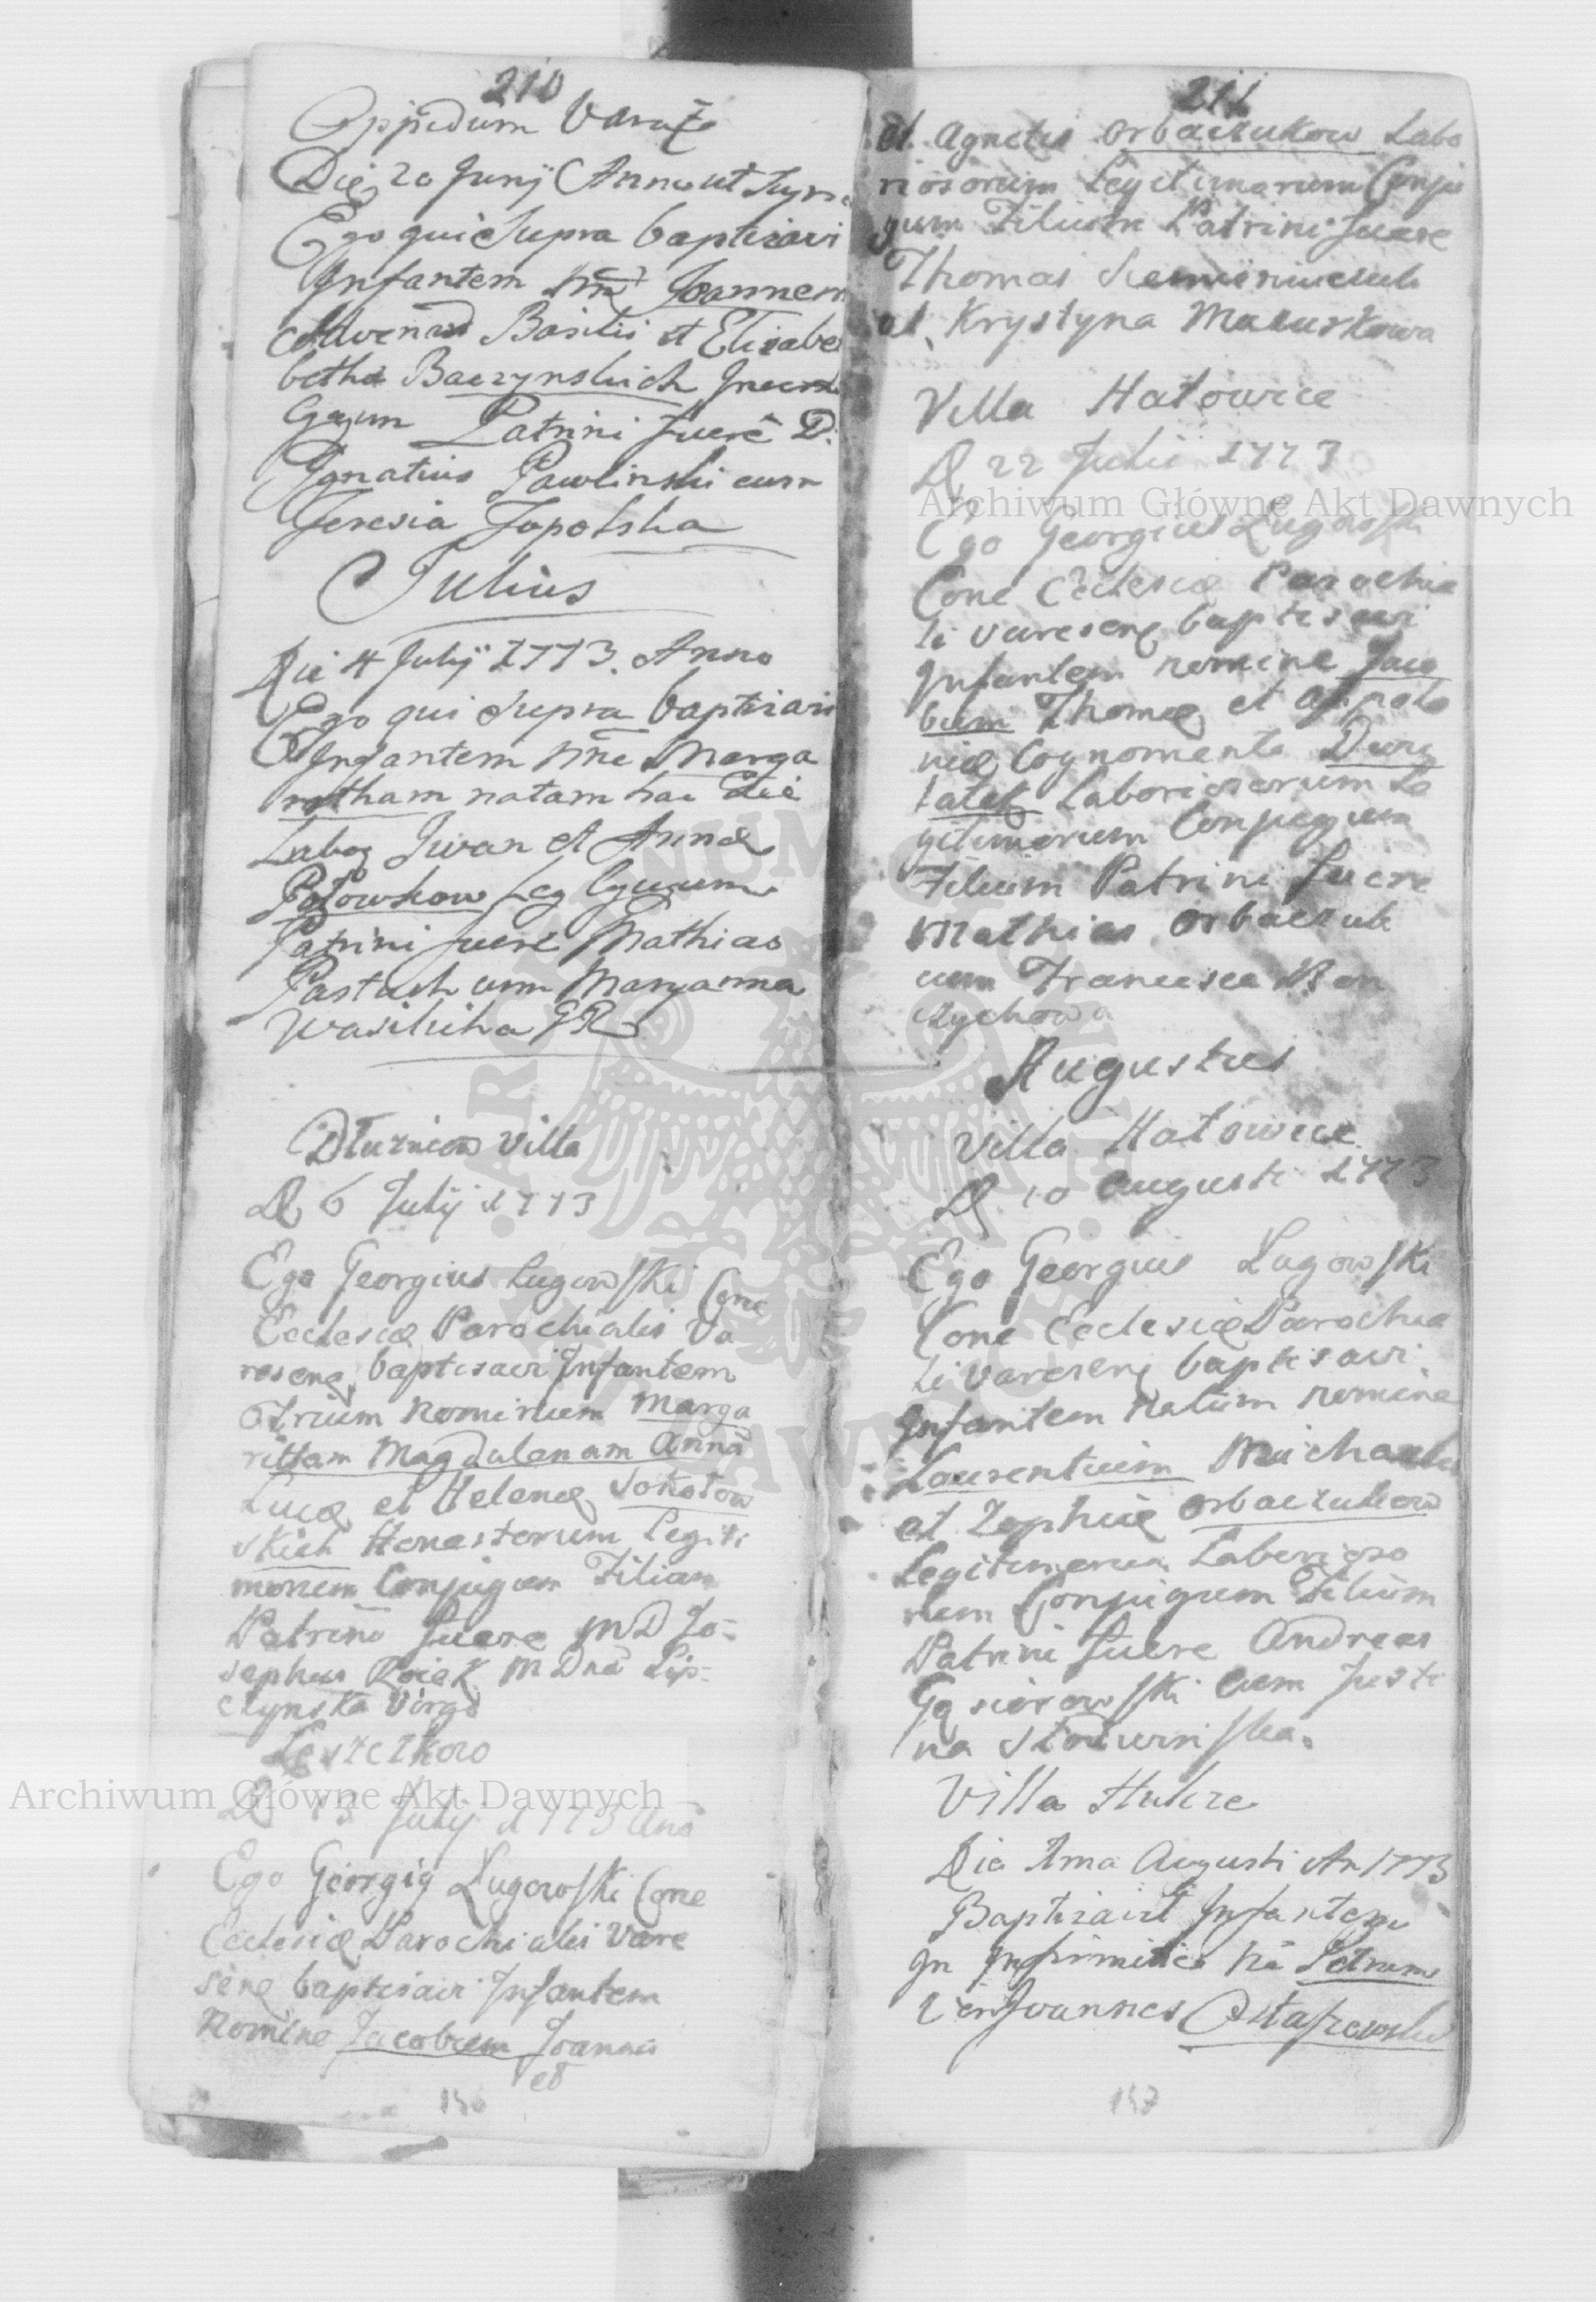 210
Oppidum Varęż
Die 20 Junij Anno ut Supra
Ego qui Supra baptizavi
Infantem Joannem
Basilii et Elisabe
betha Baczynskich
Patrini fuere D.
Ignatius Pawlinski cum
Teresia Topolska
Julius
Die 4 Julij 1773. Anno
Ego qui Supra baptizavi
Infantem nne Marga
retham natam hac Die
Labor Iwan et Annæ
Leg Cgugum
Patrini fuere Mathias
Pastuch cum Maryanna
Wasilicha GR
Dłużniow Villa
D 6 Julij 1773
Ego Georgius Lugowski Cone
Ecclesiæ Parochialis Va
resene baptisavi Infantem
trium nominum Marga
rittam Magdalenam Anna
Lucæ et Helenæ Sokołow
skich Honestorum Legiti
morum Conjugum Filiam
Patrini fuere MD Jo=
sephus M Dna Lip=
czynska Virgo
Leszczkow
D 13 July 1773 Ano
Ego Georgig Lugowski Cone
Ecclesiæ Parochialis Vare
sene baptisavi Infantem
Nomine Jacobum Joannis
et
156
211
et Agnetis Orbaczukow Labo
riosorum Legitimorum Conju
gum Filium Patrini fuere
Thomas
et Krystyna Mazurkowa
Villa Hatowice
D 22 Julii 1773
Ego Georgius Lugowski
Cone Ecclesiæ Parochia
li Varesene baptisavi
Infantem nomine Jaco
bum Thomæ et Appolo
niæ Cognomento
Laboriosorum Le
gitimorum Conjugum
Filium Patrini fuere
Mathias Orbaczuk
cum Francisca
Augustus
Villa Hatowice
D 10 Augusti 1773
Ego Georgius Lugowski
Cone Ecclesiæ Parochia
li Varesene baptisavi
Infantem Natum nomine
Laurentium Michaelis
et Zophiæ Orbaczukow
Legitimorum Laborioso
rum Conjugum Filium
Patrini fuere Andreas
Gąsiorowski cum Justi
na
Villa Hulcze
Die 1ma Augusti An 1773
Baptizavit Infantem
In Petrum
Joannes
157
Archiwum Główne Akt Dawnych
Archiwum Główne Akt Dawnych